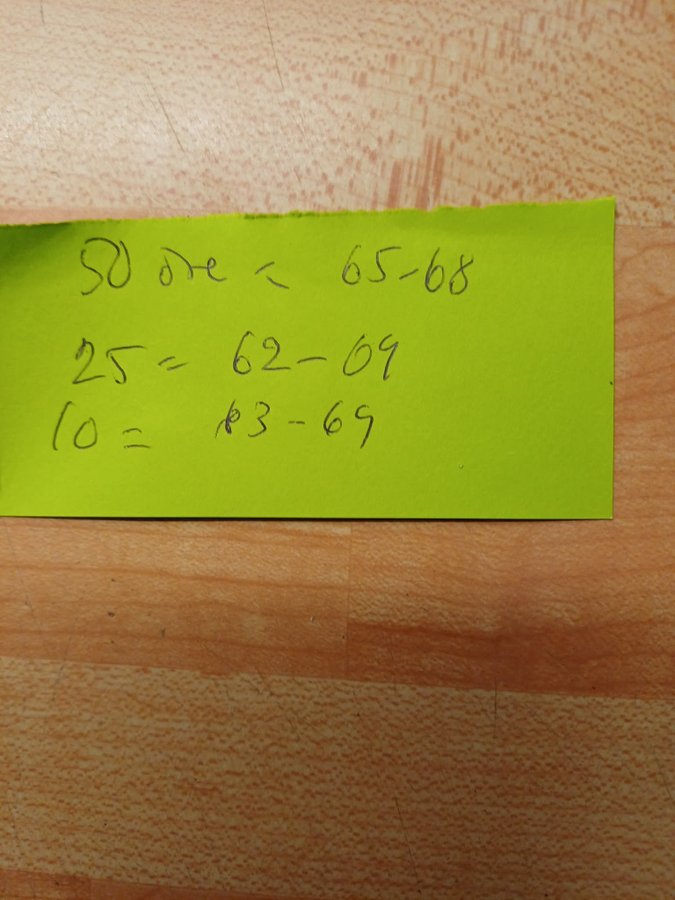 50 öre = 65-68
25 = 62-69
10 = 63-69